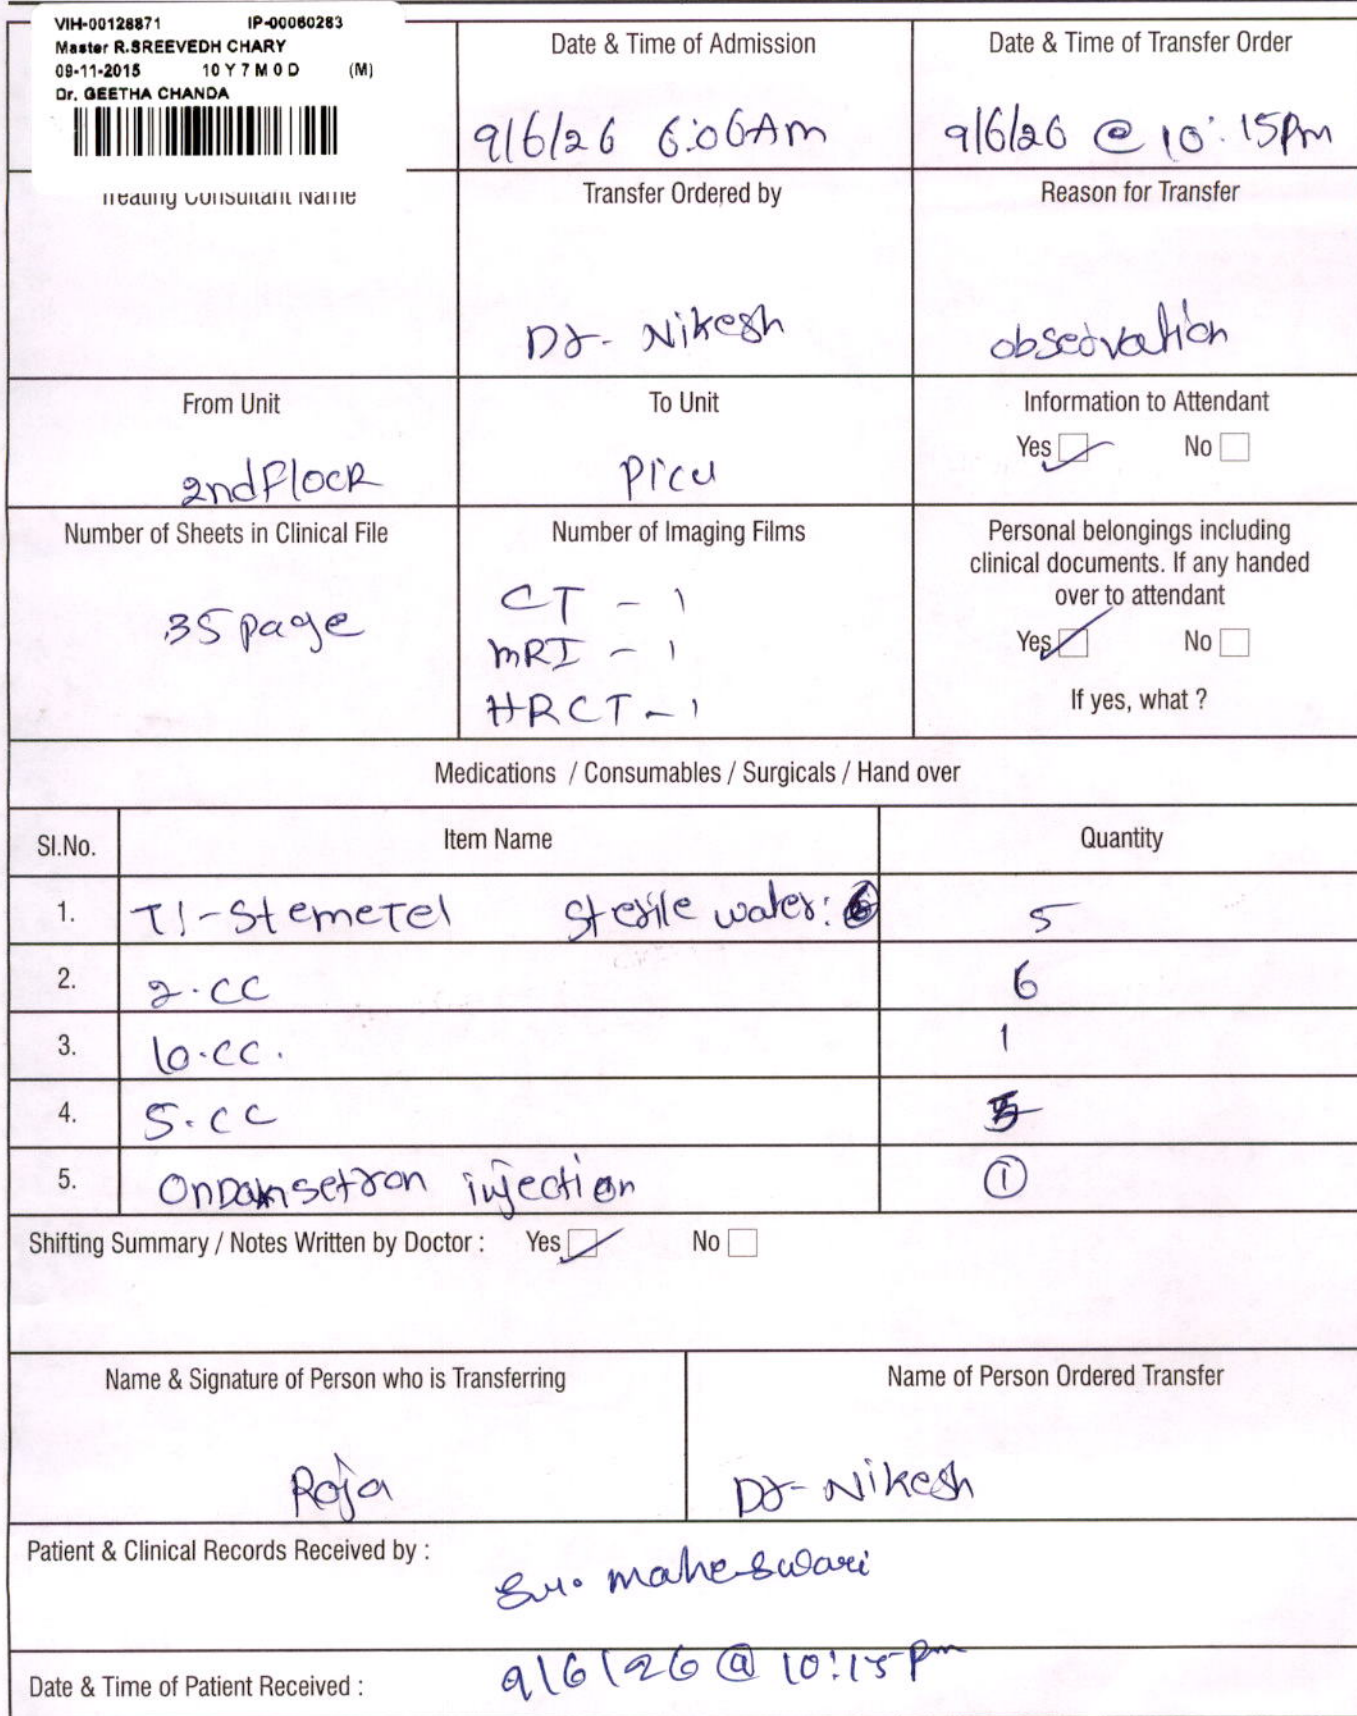 VIH-00128871 IP-00060283
Master R.SREEVEDH CHARY
09-11-2015 10 Y 7 M 0 D (M)
Dr. GEETHA CHANDA
Date & Time of Admission
9/6/26 6:06Am
Date & Time of Transfer Order
9/6/26 @ 10:15pm
Treating Consultant Name
Transfer Ordered by
Dr- Nikesh
Reason for Transfer
observation
From Unit
2nd floor
To Unit
Picu
Information to Attendant
Yes No
Number of Sheets in Clinical File
35 page
Number of Imaging Films
CT - 1
MRI - 1
HRCT - 1
Personal belongings including
clinical documents. If any handed
over to attendant
Yes No
If yes, what ?
Medications / Consumables / Surgicals / Hand over
Sl.No. Item Name Quantity
1. T1-Stemetel Sterile water: 5
2. 2.CC 6
3. 10.CC. 1
4. 5.CC
5. Ondansetron injection 1
Shifting Summary / Notes Written by Doctor : Yes No
Name & Signature of Person who is Transferring
Roja
Name of Person Ordered Transfer
Dr- Nikesh
Patient & Clinical Records Received by :
maheswari
Date & Time of Patient Received : 9/6/26 @ 10:15 pm